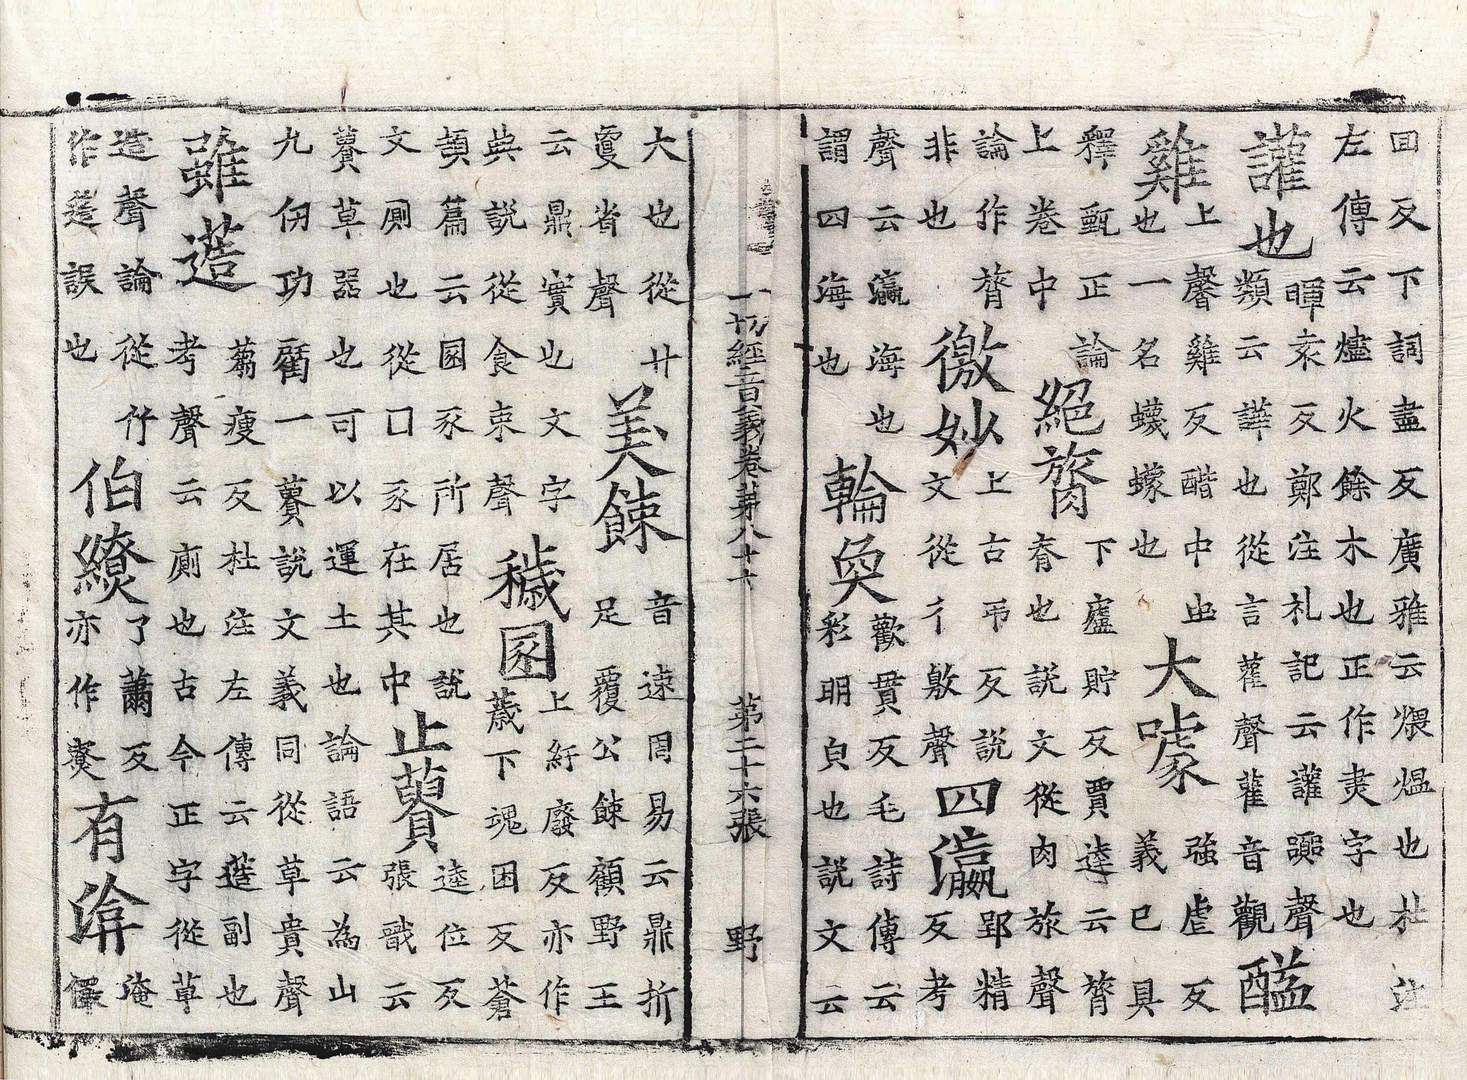 回反下詞盡反廣雅云煨煴也杜注
左傳云燼火餘木也正作㶳字也
讙也
暉袁反鄭注礼記云讙嚻聲
類云譁也從言雚聲雚音觀
醯
雞
上馨雞反醋中䖝
也一名蠛蠓也
大噱
強虐反
義已具
釋甄正論
上卷中
絕膂
下廬貯反賈逵云膂
脊也說文從肉旅聲
論作膂
非也
徼妙
上古吊反說
文從彳敫聲
四瀛
郢精
反考
聲云瀛海也
謂四海也
輪奐
歡貫反毛詩傳云
彩明皃也說文云
一切經音義卷第八十六　第二十六張　野
大也從廾
敻省聲
美餗
音速周易云鼎折
足覆公餗顧野王
云鼎實也文字
與說從食束聲
穢圂
上紆廢反亦作
薉下魂困反蒼
頡篇云圂豕所居也說
文厠也從囗豕在其中
止蕢
逵位反
張戩云
蕢草器也可以運土也論語云為山
九仞功虧一蕢說文義同從草貴聲
雖䔏
蒭瘦反杜注左傳云䔏副也
考聲云廁也古今正字從草
造聲論從竹
作䔏誤也
伯繚
了蕭反
亦作尞
有渰
淹